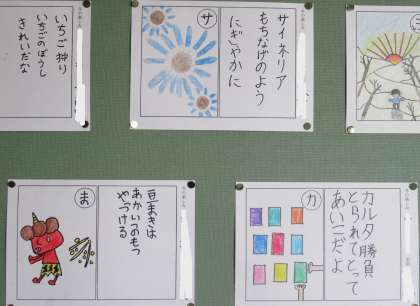 いちご狩り
いちごのぼうし
きれいだな
サ
サイネリア
もちなげのよう
にぎやかに
に
ま
豆まきは
あかいつのもつ
やっつける
カ
カルタ勝負
とられてとって
あいこだよ